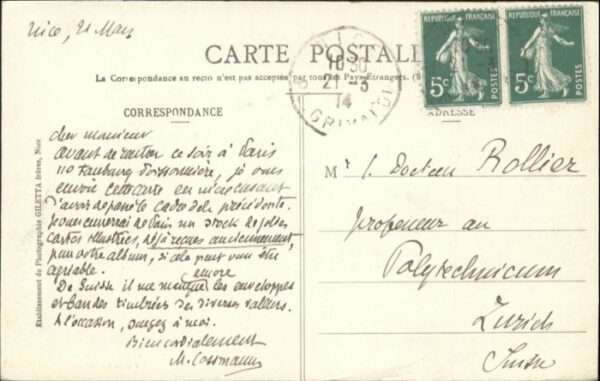 Nice, 21 Mars
CARTE POSTALE
La Correspondance au recto n'est pas acceptée par tous les Pays Étrangers.
NICE
10 30
21 - 3
14
GRIMALDI
RÉPUBLIQUE FRANÇAISE
5c
POSTES
RÉPUBLIQUE FRANÇAISE
5c
POSTES
CORRESPONDANCE
ADRESSE
Etablissement de Photographie GILETTA frères, Nice
Cher Monsieur
Avant de rentrer ce soir à Paris
110 Faubourg Poissonnière, je vous
envoie cette carte en
Je vous enverrai de Paris un stock de jolies
cartes illustrées, déjà reçues anciennement,
pour votre album, si cela peut vous être
agréable.
De Suisse il me manque encore les enveloppes
et bandes timbrées des diverses valeurs.
A l'occasion, songez à moi.
Bien cordialement
M. Cossmann
Mr le Docteur Rollier
professeur au
Polytechnicum
Zurich
Suisse